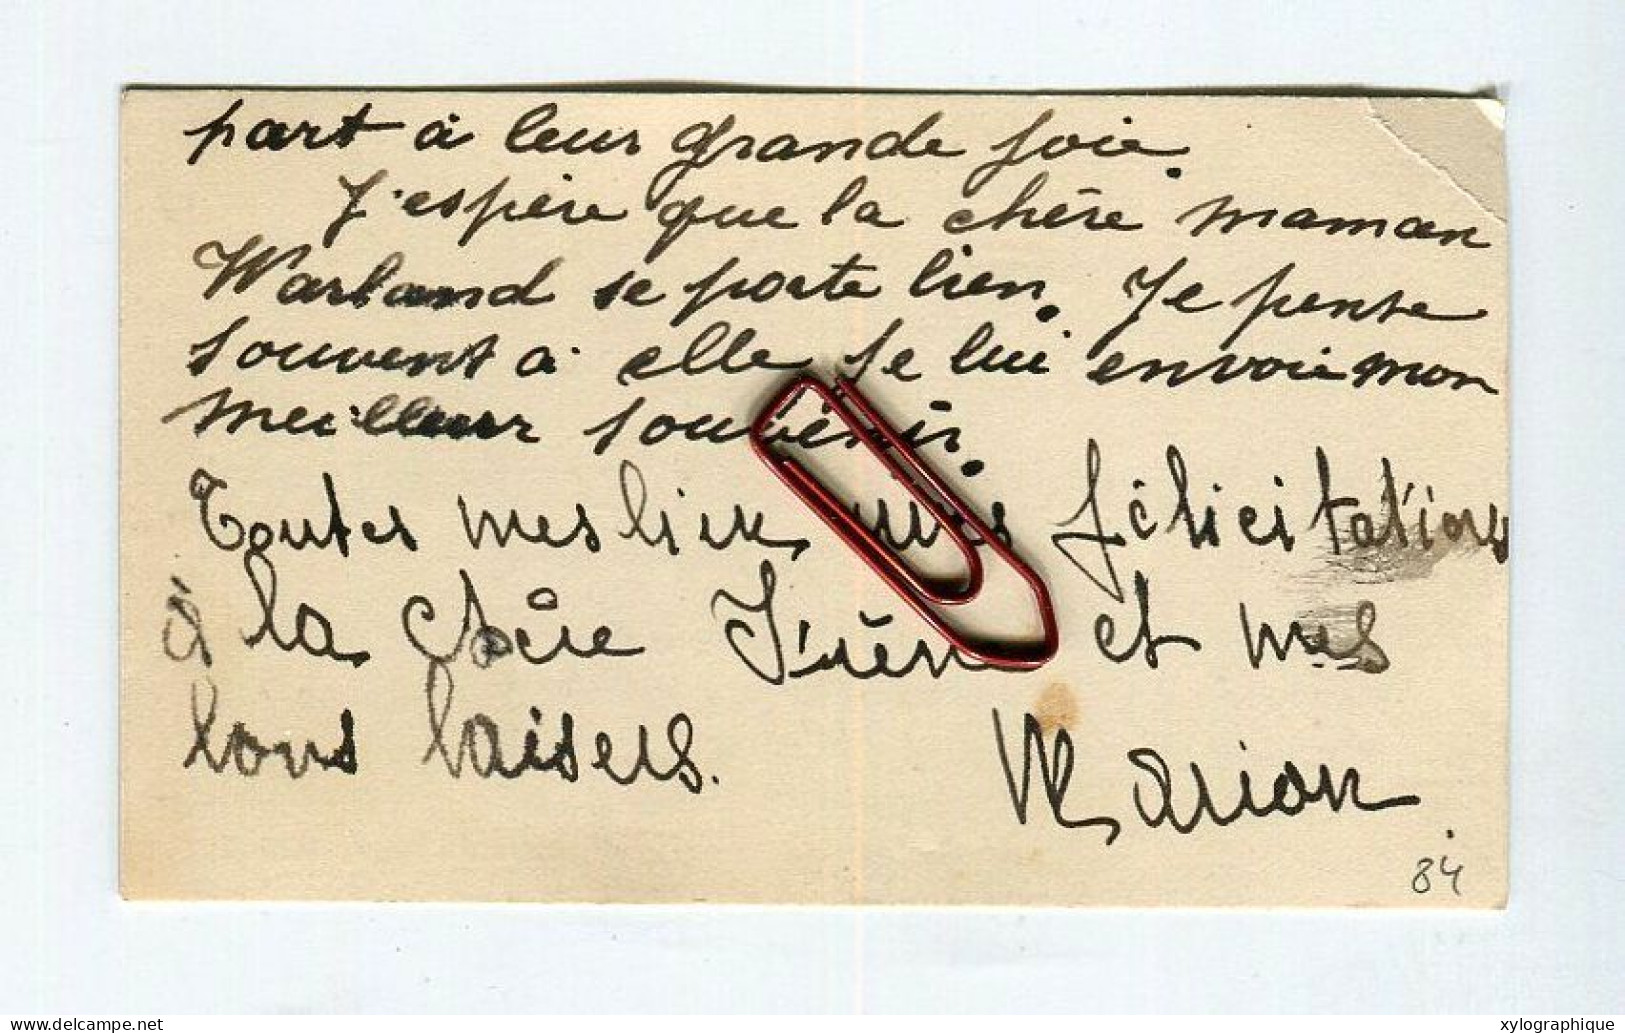 part à leur grande joie.
J'espère que la chère maman
Warland se porte bien. Je pense
souvent à elle je lui envoie mon
meilleur souvenir.
Toutes mes mes félicitations
à la chère Irène et mes
bons baisers.
Marion.
84
delcampe.net
xylographique